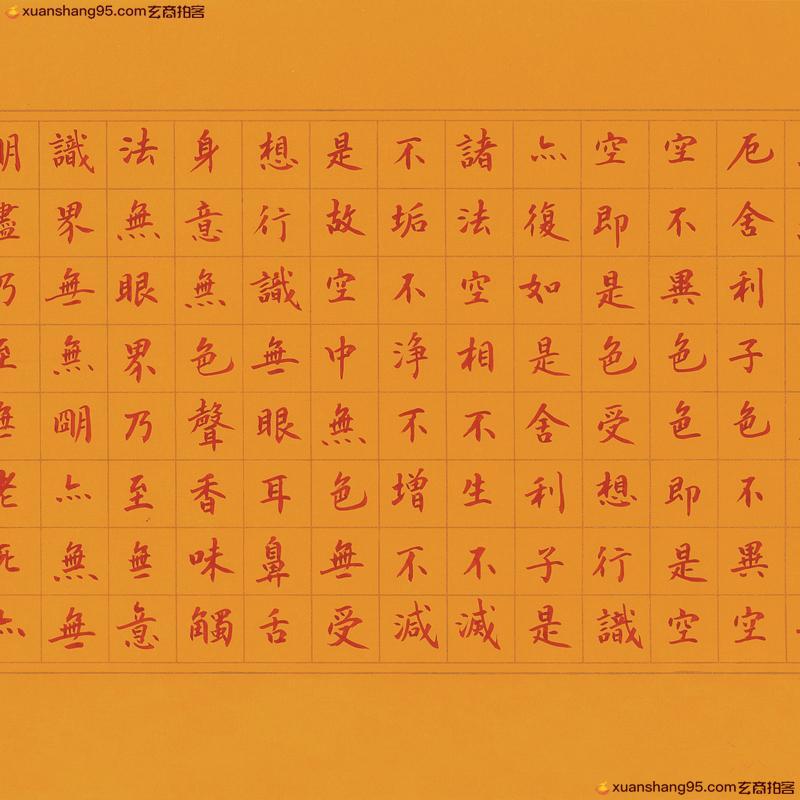 xuanshang95.com玄商拍客
厄舍利子色不異空
空不異色色即是空
空即是色受想行識
亦復如是舍利子是
諸法空相不生不滅
不垢不淨不增不減
是故空中無色無受
想行識無眼耳鼻舌
身意無色聲香味觸
法無眼界乃至無意
識界無無明亦無無
明盡乃至無老死亦
xuanshang95.com玄商拍客